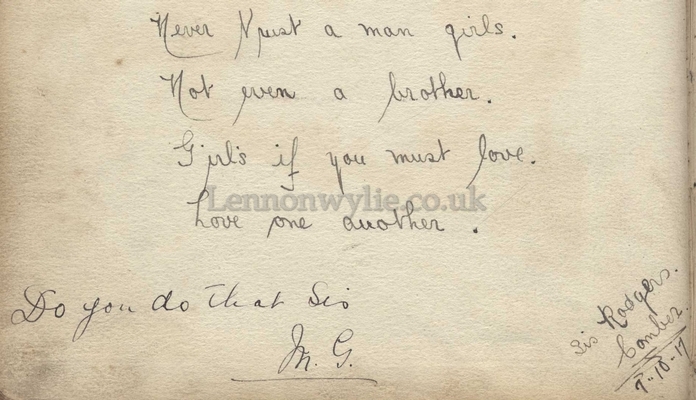 Never Trust a man girls.
Not even a brother.
Girls if you must love.
Lennonwylie.co.uk
Love one another.
Do you do that Sis
M. G.
Sis Rodgers.
Comber
7-10-17